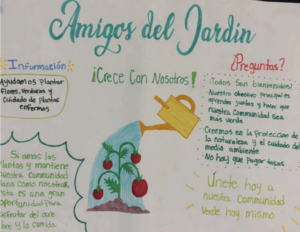 Amigos del Jardín
Información
Ayudamos Plantar
Flores, Verduras y
Cuidado de plantas
enfermas
¡Crece Con Nosotros!
¿Preguntas?
¡Todos Son bienvenidos!
Nuestro objectivo principal es
aprender juntos y hacer que
nuestra Comunidad sea
más verde
Creemos en la Protección de
la naturaleza y el cuidado del
medio ambiente
No hay que pagar
Si amas las
plantas y mantener
nuestra Comunidad
sana como nosotros,
esta es una gran
oportunidad Para
disfrutar del
libre y la comida.
Únete hoy a
nuestra Comunidad
Verde hoy mismo